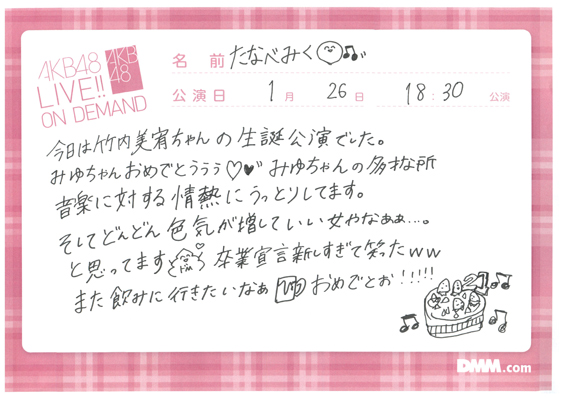 AKB48
LIVE!!
ON DEMAND
AKB
48
名 前 たなべみく
公演日 1月 26日 18:30 公演
今日は竹内美宥ちゃんの生誕公演でした。
みゆちゃんおめでとううう♡♥みゆちゃんの多才な所
音楽に対する情熱にうっとりしてます。
そしてどんどん色気が増していい女やなぁぁ…。
と思ってます 卒業宣言新しすぎて笑ったww
また飲みに行きたいなぁ おめでとお!!!!!
21
DMM.com